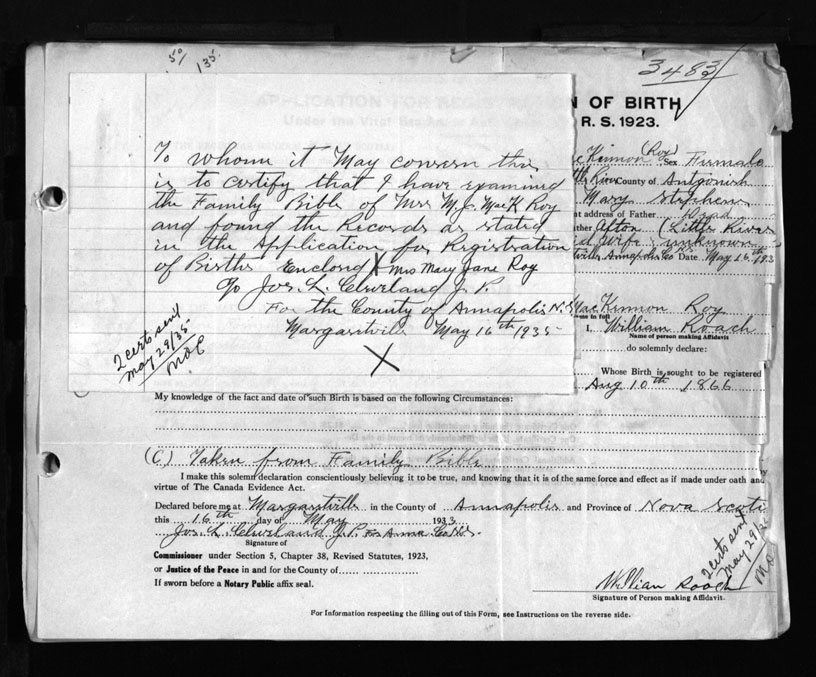 50/
135.
3483
N OF BIRTH
R. S. 1923.
To whom it May concern this
is to certify that I have examined
the Family Bible of Mrs M.J. MacK Roy
and found the Records as stated
in the Application for Registration
of Births Enclosed X Mrs Mary Jane Roy
Jos. L. Cleveland J.P.
For the County of Annapolis N.S
Margaretville May 16th 1935-
X
2 certs sent
May 29/35-
Kinnon (Roy) Sex Fumale
County of Antgonish
Mary Stephens
at address of Father Dead
Afton (Little River
Wife unknown
Annapolis Co Date May 16th 193
MacKinnon Roy
me in full
I, William Roach
Name of person making Affidavit
do solemnly declare:
Whose Birth is sought to be registered
Aug 10th 1866
My knowledge of the fact and date of such Birth is based on the following Circumstances:
(C) Taken from Family Bible
I make this solemn declaration conscientiously believing it to be true, and knowing that it is of the same force and effect as if made under oath and by
virtue of The Canada Evidence Act.
Declared before me at Margaretville in the County of Annapolis and Province of Nova Scoti
this 16th day of May 1933
Jos. L. Cleveland J.P. For Anna Co N.S.
Signature of
Commissioner under Section 5, Chapter 38, Revised Statutes, 1923,
or Justice of the Peace in and for the County of
If sworn before a Notary Public affix seal.
2 certs sent
May 29/35
William Roach
Signature of Person making Affidavit.
For Information respecting the filling out of this Form, see Instructions on the reverse side.